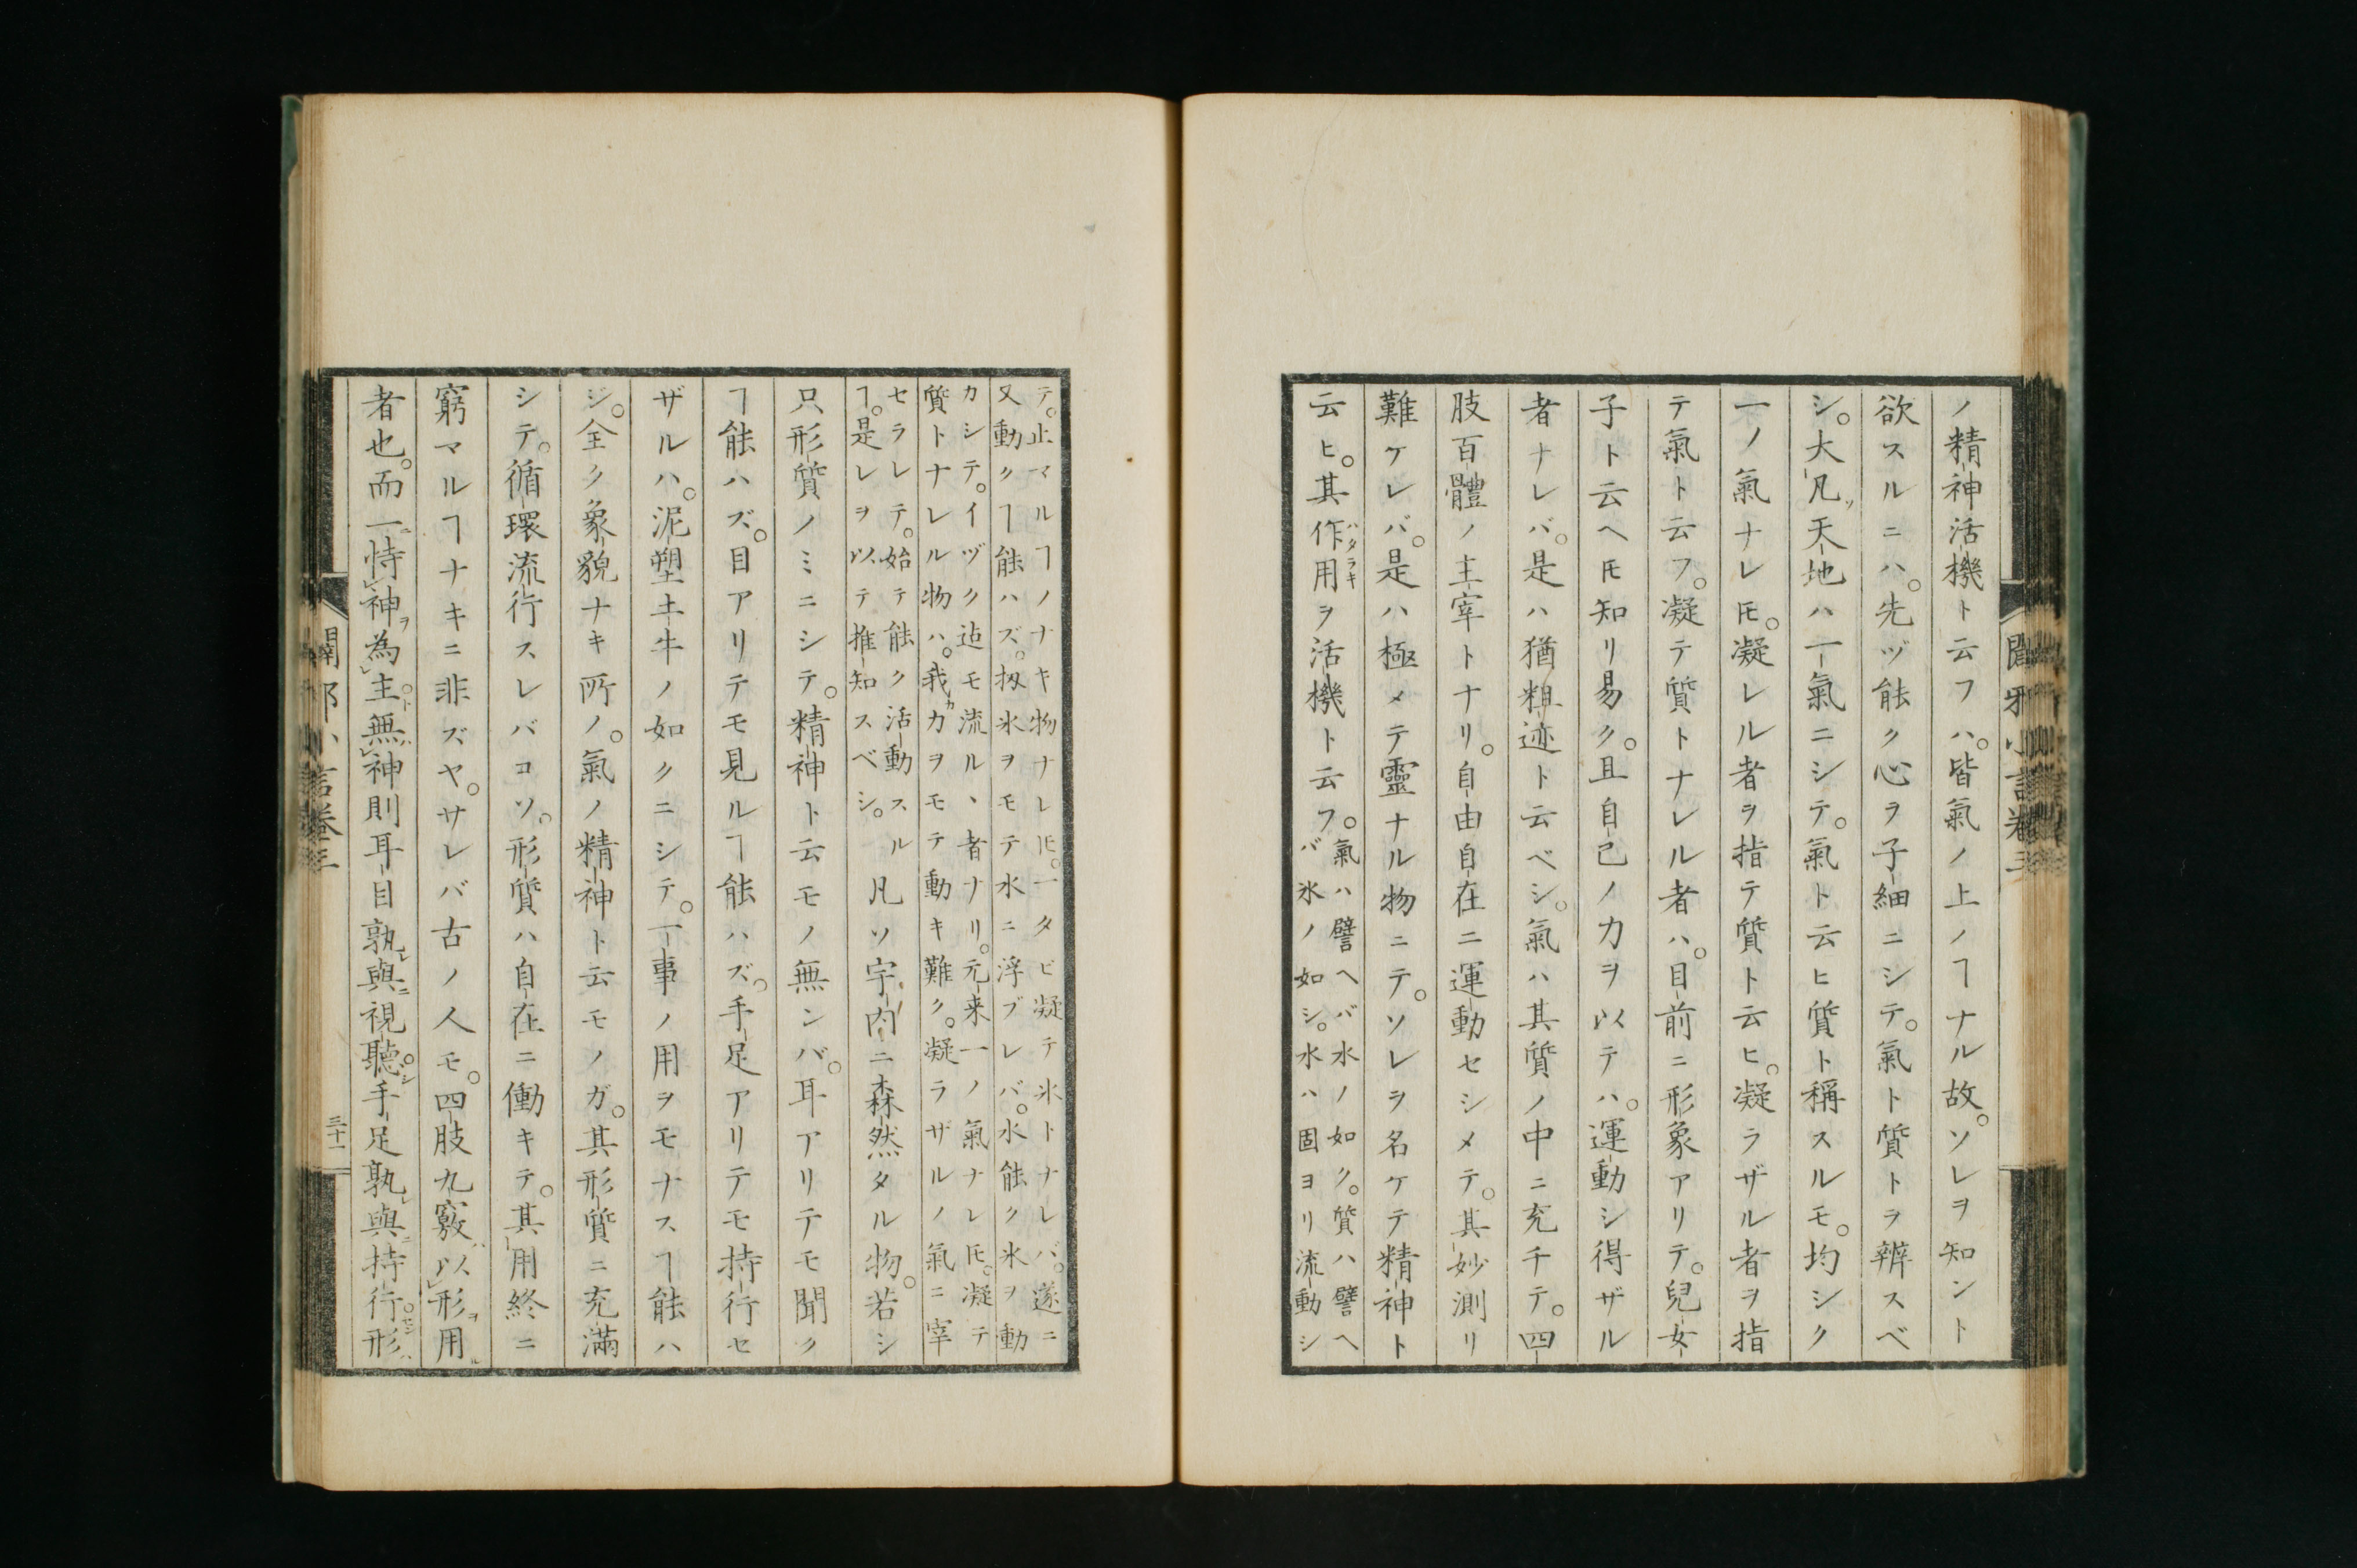 ノ精神活機ト云フハ。皆氣ノ上ノヿナル故。ソレヲ知ント
欲スルニハ。先ヅ能ク心ヲ子細ニシテ。氣ト質トヲ辨スベ
シ。大凡ソ天地ハ一氣ニシテ。氣ト云ヒ質ト稱スルモ。均シク
一ノ氣ナレ𪜈。凝レル者ヲ指テ質ト云ヒ。凝ラザル者ヲ指
テ氣ト云フ。凝テ質トナレル者ハ。目前ニ形象アリテ。兒女
子ト云ヘ𪜈知リ易ク。且自己ノ力ヲ以テハ。運動シ得ザル
者ナレバ。是ハ猶粗迹ト云ベシ。氣ハ其質ノ中ニ充チテ。四
肢百體ノ主宰トナリ。自由自在ニ運動セシメテ。其妙測リ
難ケレバ。是ハ極メテ靈ナル物ニテ。ソレヲ名ケテ精神ト
云ヒ。其作用ハタラキヲ活機ト云フ。
氣ハ譬ヘバ水ノ如ク。質ハ譬ヘ
バ氷ノ如シ。水ハ固ヨリ流動シ
テ。止マルヿノナキ物ナレ𪜈。一タビ凝テ氷トナレバ。遂ニ
又動クヿ能ハズ。扨氷ヲモテ水ニ浮ブレバ。水能ク氷ヲ動
カシテ。イヅク迠モ流ルヽ者ナリ。元来一ノ氣ナレ𪜈。凝テ
質トナレル物ハ。我カ力ヲモテ動キ難ク。凝ラザルノ氣ニ宰
セラレテ。始テ能ク活動スル
ヿ。是レヲ以テ推知スベシ。
凡ソ宇内ニ森然タル物。若シ
只形質ノミニシテ。精神ト云モノ無ンバ。耳アリテモ聞ク
ヿ能ハズ。目アリテモ見ルヿ能ハズ。手足アリテモ持行セ
ザルハ。泥塑土牛ノ如クニシテ。一事ノ用ヲモナスヿ能ハ
ジ。全ク象貌ナキ所ノ。氣ノ精神ト云モノガ。其形質ニ充滿
シテ。循環流行スレバコソ。形質ハ自在ニ働キテ。其用終ニ
窮マルヿナキニ非ズヤ。サレバ古ノ人モ。四肢九竅ハ以レ形ヲ用ル
者也。而一ニ恃レ神ヲ為レ主ト。無レバ神則耳目孰レ與ニ視聽シ。手足孰レ與ニ持行セシ。形ハ
闢邪小言卷三
三十一